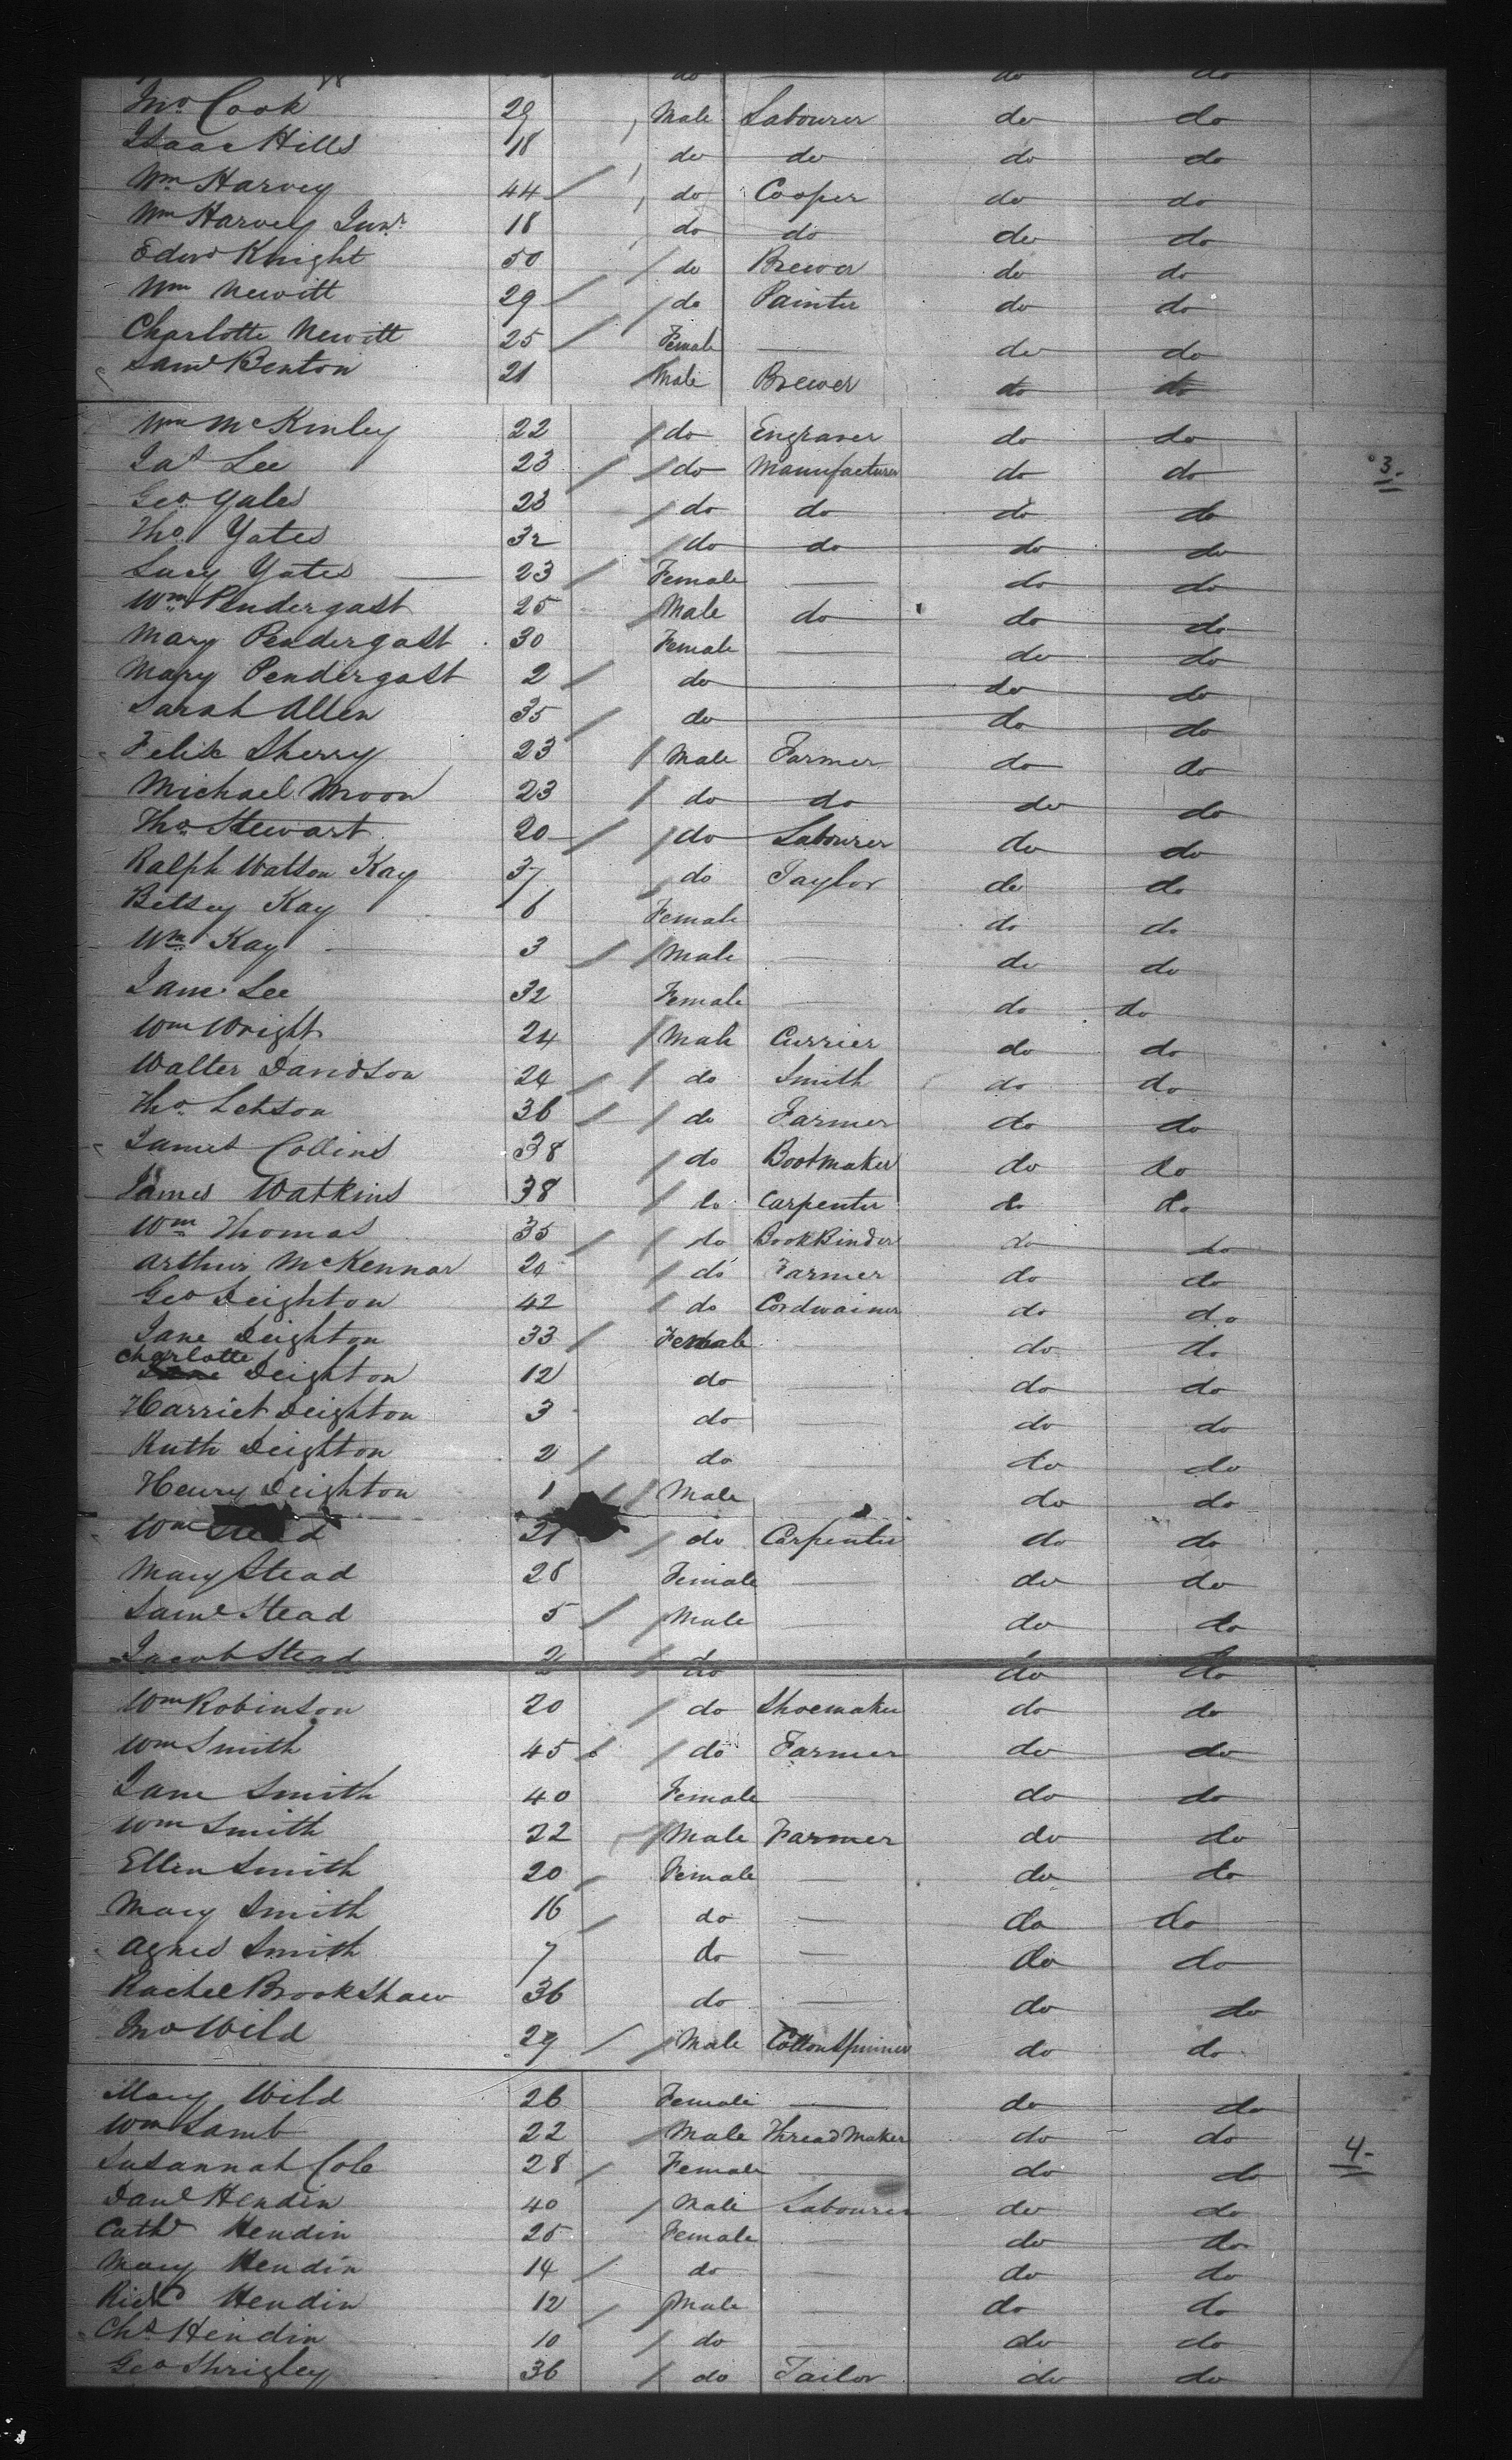 do do do
Jno Cook 29 Male Labourer do do
Isaac Hills 18 do do do do
Wm Harvey 44 do Cooper do do
Wm Harvey Junr 18 do do do do
Edwd Knight 50 do Brewer do do
Wm Newitt 29 do Painter do do
Charlotte Newitt 25 Female — do do
Saml Benton 21 Male Brewer do do
Wm McKinley 22 do Engraver do do
Jas Lee 23 do Manufacturer do do 3-
Geo Yates 23 do do do do
Thos Yates 32 do do do do
Lucy Yates — 23 Female — do do
Wm Pendergast 25 Male do do do
Mary Pendergast 30 Female — do do
Mary Pendergast 2 do — do do
Sarah Allen 35 do — do do
Felix Sherry 23 Male Farmer do do
Michael Moon 23 do do do do
Thos Stewart 20 do Labourer do do
Ralph Watson Kay 37 do Taylor do do
Betsey Kay 6 Female — do do
Wm Kay — 3 Male — do do
Jane Lee 32 Female — do do
Wm Wright 24 Male Currier do do
Walter Davidson 24 do Smith do do
Tho Letson 36 do Farmer do do
James Collins 38 do Bootmaker do do
James Watkins 38 do Carpenter do do
Wm Thomas 35 do BookBinder do do
Arthur McKennar 20 do Farmer do do
Geo Deighton 42 do Cordwainer do do
Jane Deighton 33 Female — do do
Charlotte Deighton 12 do — do do
Harriet Deighton 3 do — do do
Ruth Deighton 2 do — do do
Henry Deighton 1 Male — do do
Wm Stead 21 do Carpenter do do
Mary Stead 28 Female — do do
Saml Stead 5 Male — do do
Jacob Stead 2 do — do do
Wm Robinson 20 do Shoemaker do do
Wm Smith 45 do Farmer do do
Jane Smith 40 Female — do do
Wm Smith 22 Male Farmer do do
Ellen Smith 20 Female — do do
Mary Smith 16 do — do do
Agnes Smith 7 do — do do
Rachel Brookshaw 36 do — do do
Jno Wild 29 Male Cotton Spinner do do
Mary Wild 26 Female — do do
Wm Lamb 22 Male Thread Maker do do 4-
Susannah Cole 28 Female — do do
Danl Hendin 40 Male Labourer do do
Cathe Hendin 25 Female — do do
Mary Hendin 14 do — do do
Richd Hendin 12 Male — do do
Chs Hendin 10 do — do do
Geo Shrigley 36 do Tailor do do